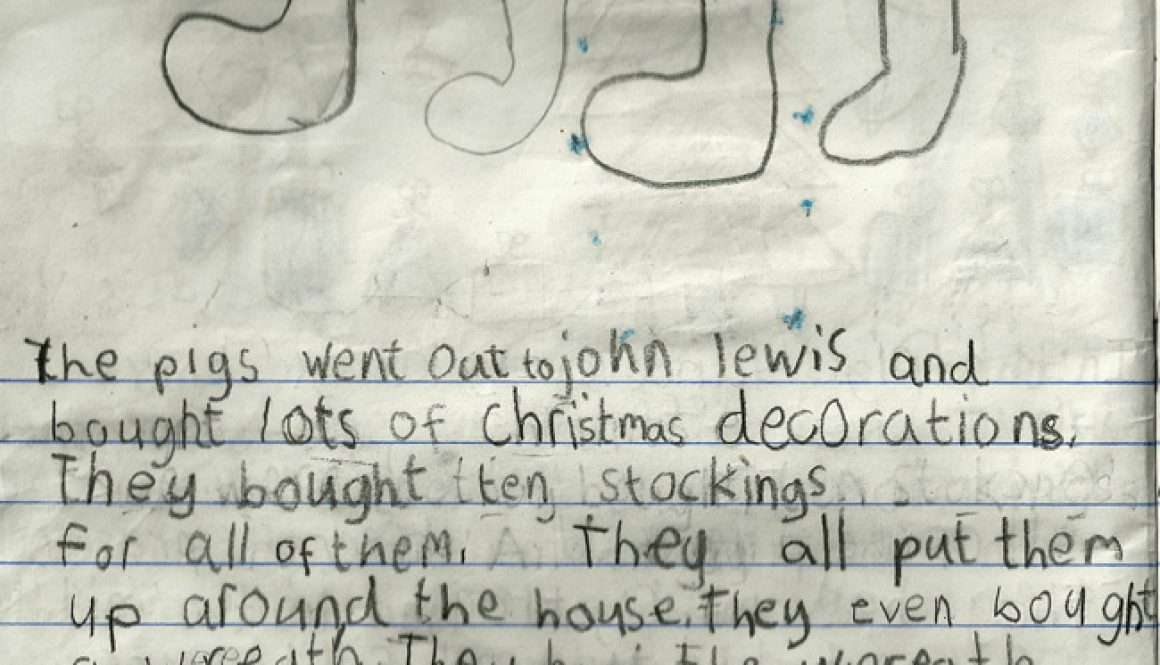 the pigs went out to john lewis and
bought lots of christmas decorations.
They bought ten stockings
for all of them. They all put them
up around the house. They even bought
a wreeath. They